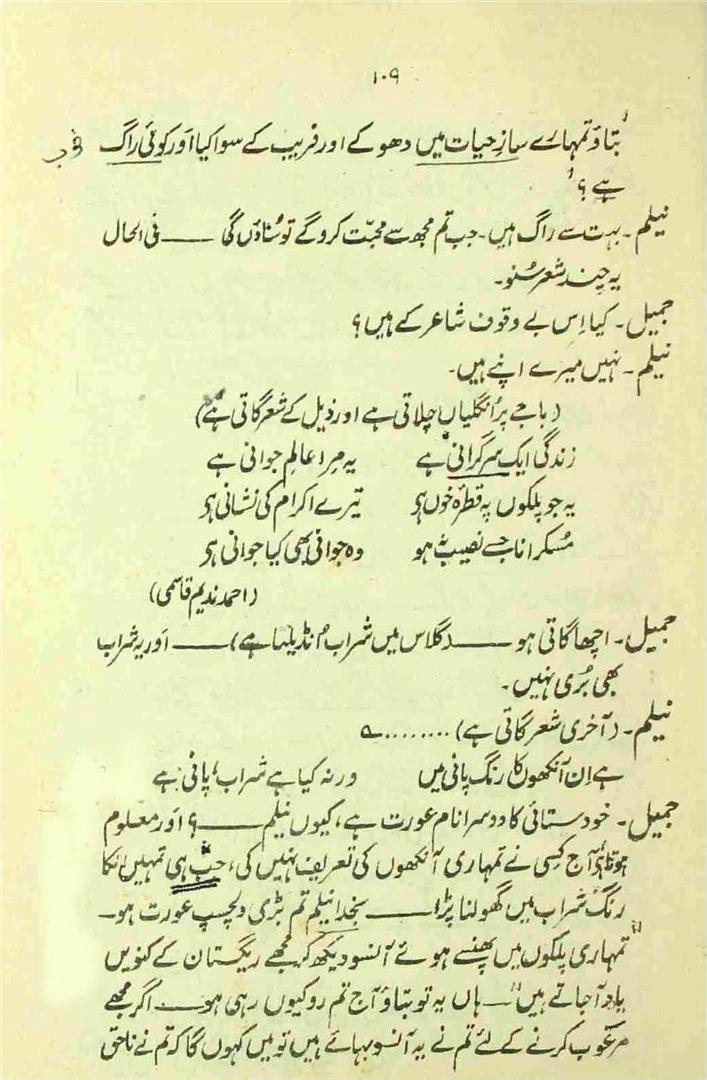 ۱۰۹
بتاؤ تمہارے سازِ حیات میں دھوکے اور فریب کے سوا کیا اور کوئی راگ
ہے؟'
نیلم۔ بہت سے راگ ہیں۔ جب تم مجھ سے محبّت کرو گے تو سُناؤں گی —— فی الحال
یہ چند شعر سُنو۔
جمیل۔ کیا اِس بے وقوف شاعر کے ہیں؟
نیلم۔ نہیں میرے اپنے ہیں۔
(باجے پر اُنگلیاں چلاتی ہے اور ذیل کے شعر گاتی ہے)
زندگی ایک سرگرانی ہے یہ مِرا عالمِ جوانی ہے
یہ جو پلکوں پہ قطرۂ خوں ہے تیرے اکرام کی نشانی ہے
مُسکرانا جسے نصیب نہ ہو وہ جوانی بھی کیا جوانی ہے
(احمد ندیم قاسمی)
جمیل۔ اچھا گاتی ہو —— (گلاس میں شراب اُنڈیلتا ہے) —— اَور یہ شراب
بھی بُری نہیں۔
نیلم۔ (آخری شعر گاتی ہے) ........ ے
ہے اِن آنکھوں کا رنگ پانی میں ورنہ کیا ہے شراب، پانی ہے
جمیل۔ خود ستائی کا دوسرا نام عورت ہے، کیوں نیلم —— ؟ اَور معلوم
ہوتا ہے آج کِسی نے تمہاری آنکھوں کی تعریف نہیں کی، جب ہی تمہیں انکا
رنگ شراب میں گھولنا پڑا —— بخدا نیلم تم بڑی دلچسپ عورت ہو۔
"تمہاری پلکوں میں پھنسے ہوئے آنسو دیکھ کر مجھے ریگستان کے کنویں
یاد آ جاتے ہیں" — ہاں یہ تو بتاؤ آج تم رو کیوں رہی ہو —— اگر مجھے
مرعوب کرنے کے لئے تم نے یہ آنسو بہائے ہیں تو میں کہوں گا کہ تم نے ناحق